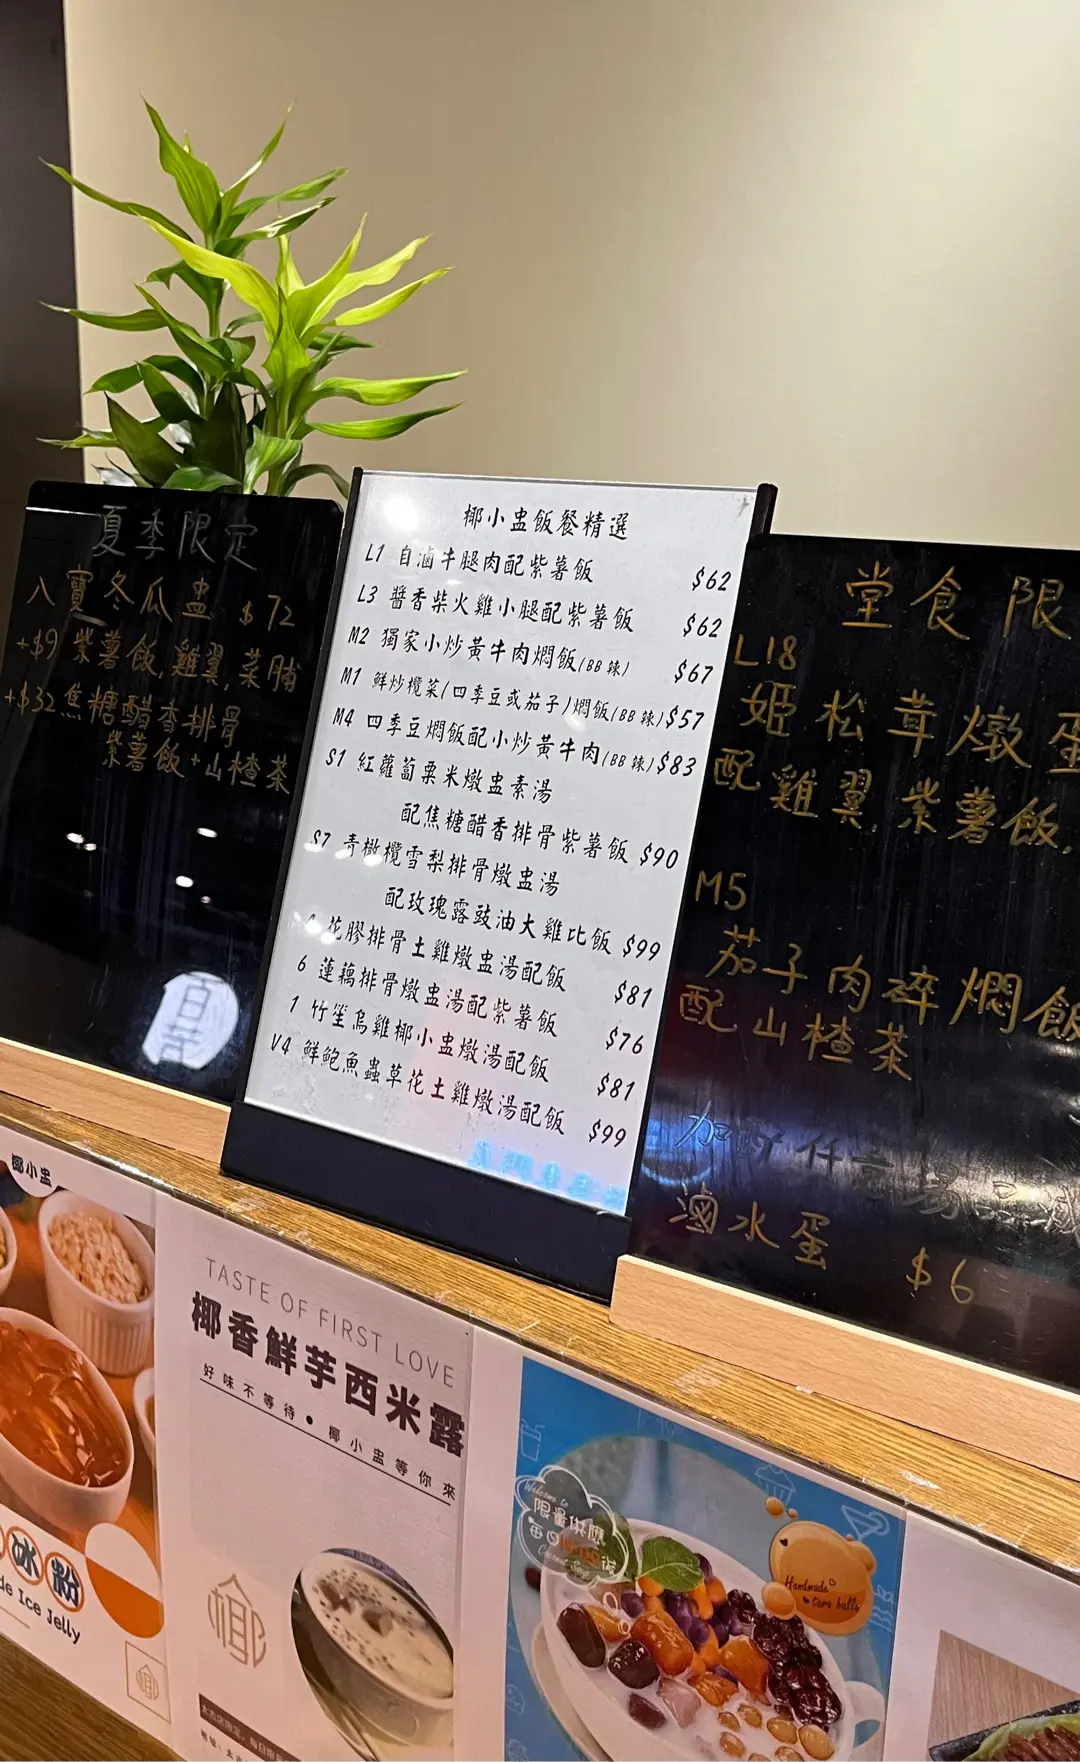 夏季限定
八寶冬瓜盅 $72
+$9 紫薯飯,雞翼,菜脯
+$32 焦糖醋香排骨
紫薯飯+山楂茶
椰小盅飯餐精選
L1 自滷牛腿肉配紫薯飯 $62
L3 醬香柴火雞小腿配紫薯飯 $62
M2 獨家小炒黃牛肉燜飯(BB辣) $67
M1 鮮炒欖菜(四季豆或茄子)燜飯(BB辣) $57
M4 四季豆燜飯配小炒黃牛肉(BB辣) $83
S1 紅蘿蔔粟米燉盅素湯
配焦糖醋香排骨紫薯飯 $90
S7 青橄欖雪梨排骨燉盅湯
配玫瑰露豉油大雞比飯 $99
花膠排骨土雞燉盅湯配飯 $81
6 蓮藕排骨燉盅湯配紫薯飯 $76
1 竹笙烏雞椰小盅燉湯配飯 $81
V4 鮮鮑魚蟲草花土雞燉湯配飯 $99
堂食限
L18
姬松茸燉蛋
配雞翼,紫薯飯,
M5
茄子肉碎燜飯
配山楂茶
滷水蛋 $6
椰小盅
冰粉
de Ice Jelly
TASTE OF FIRST LOVE
椰香鮮芋西米露
好味不等待•椰小盅等你來
椰
Welcome to
限量供應
每日
Coconut Soup
Handmade
taro balls